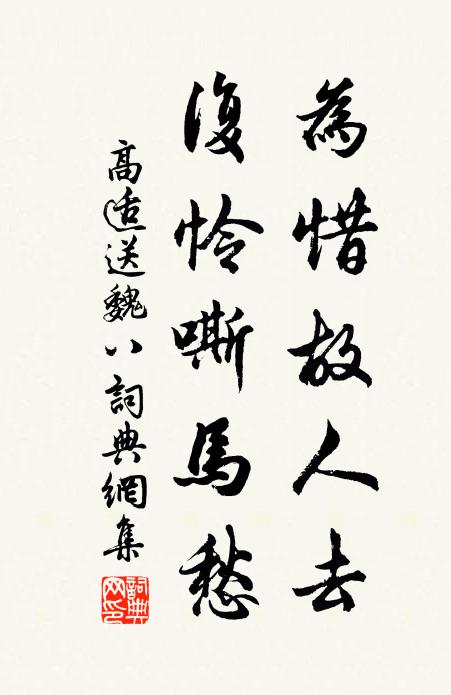 為惜故人去
復憐嘶馬愁
高适送魏八詞典網集
詞典網印